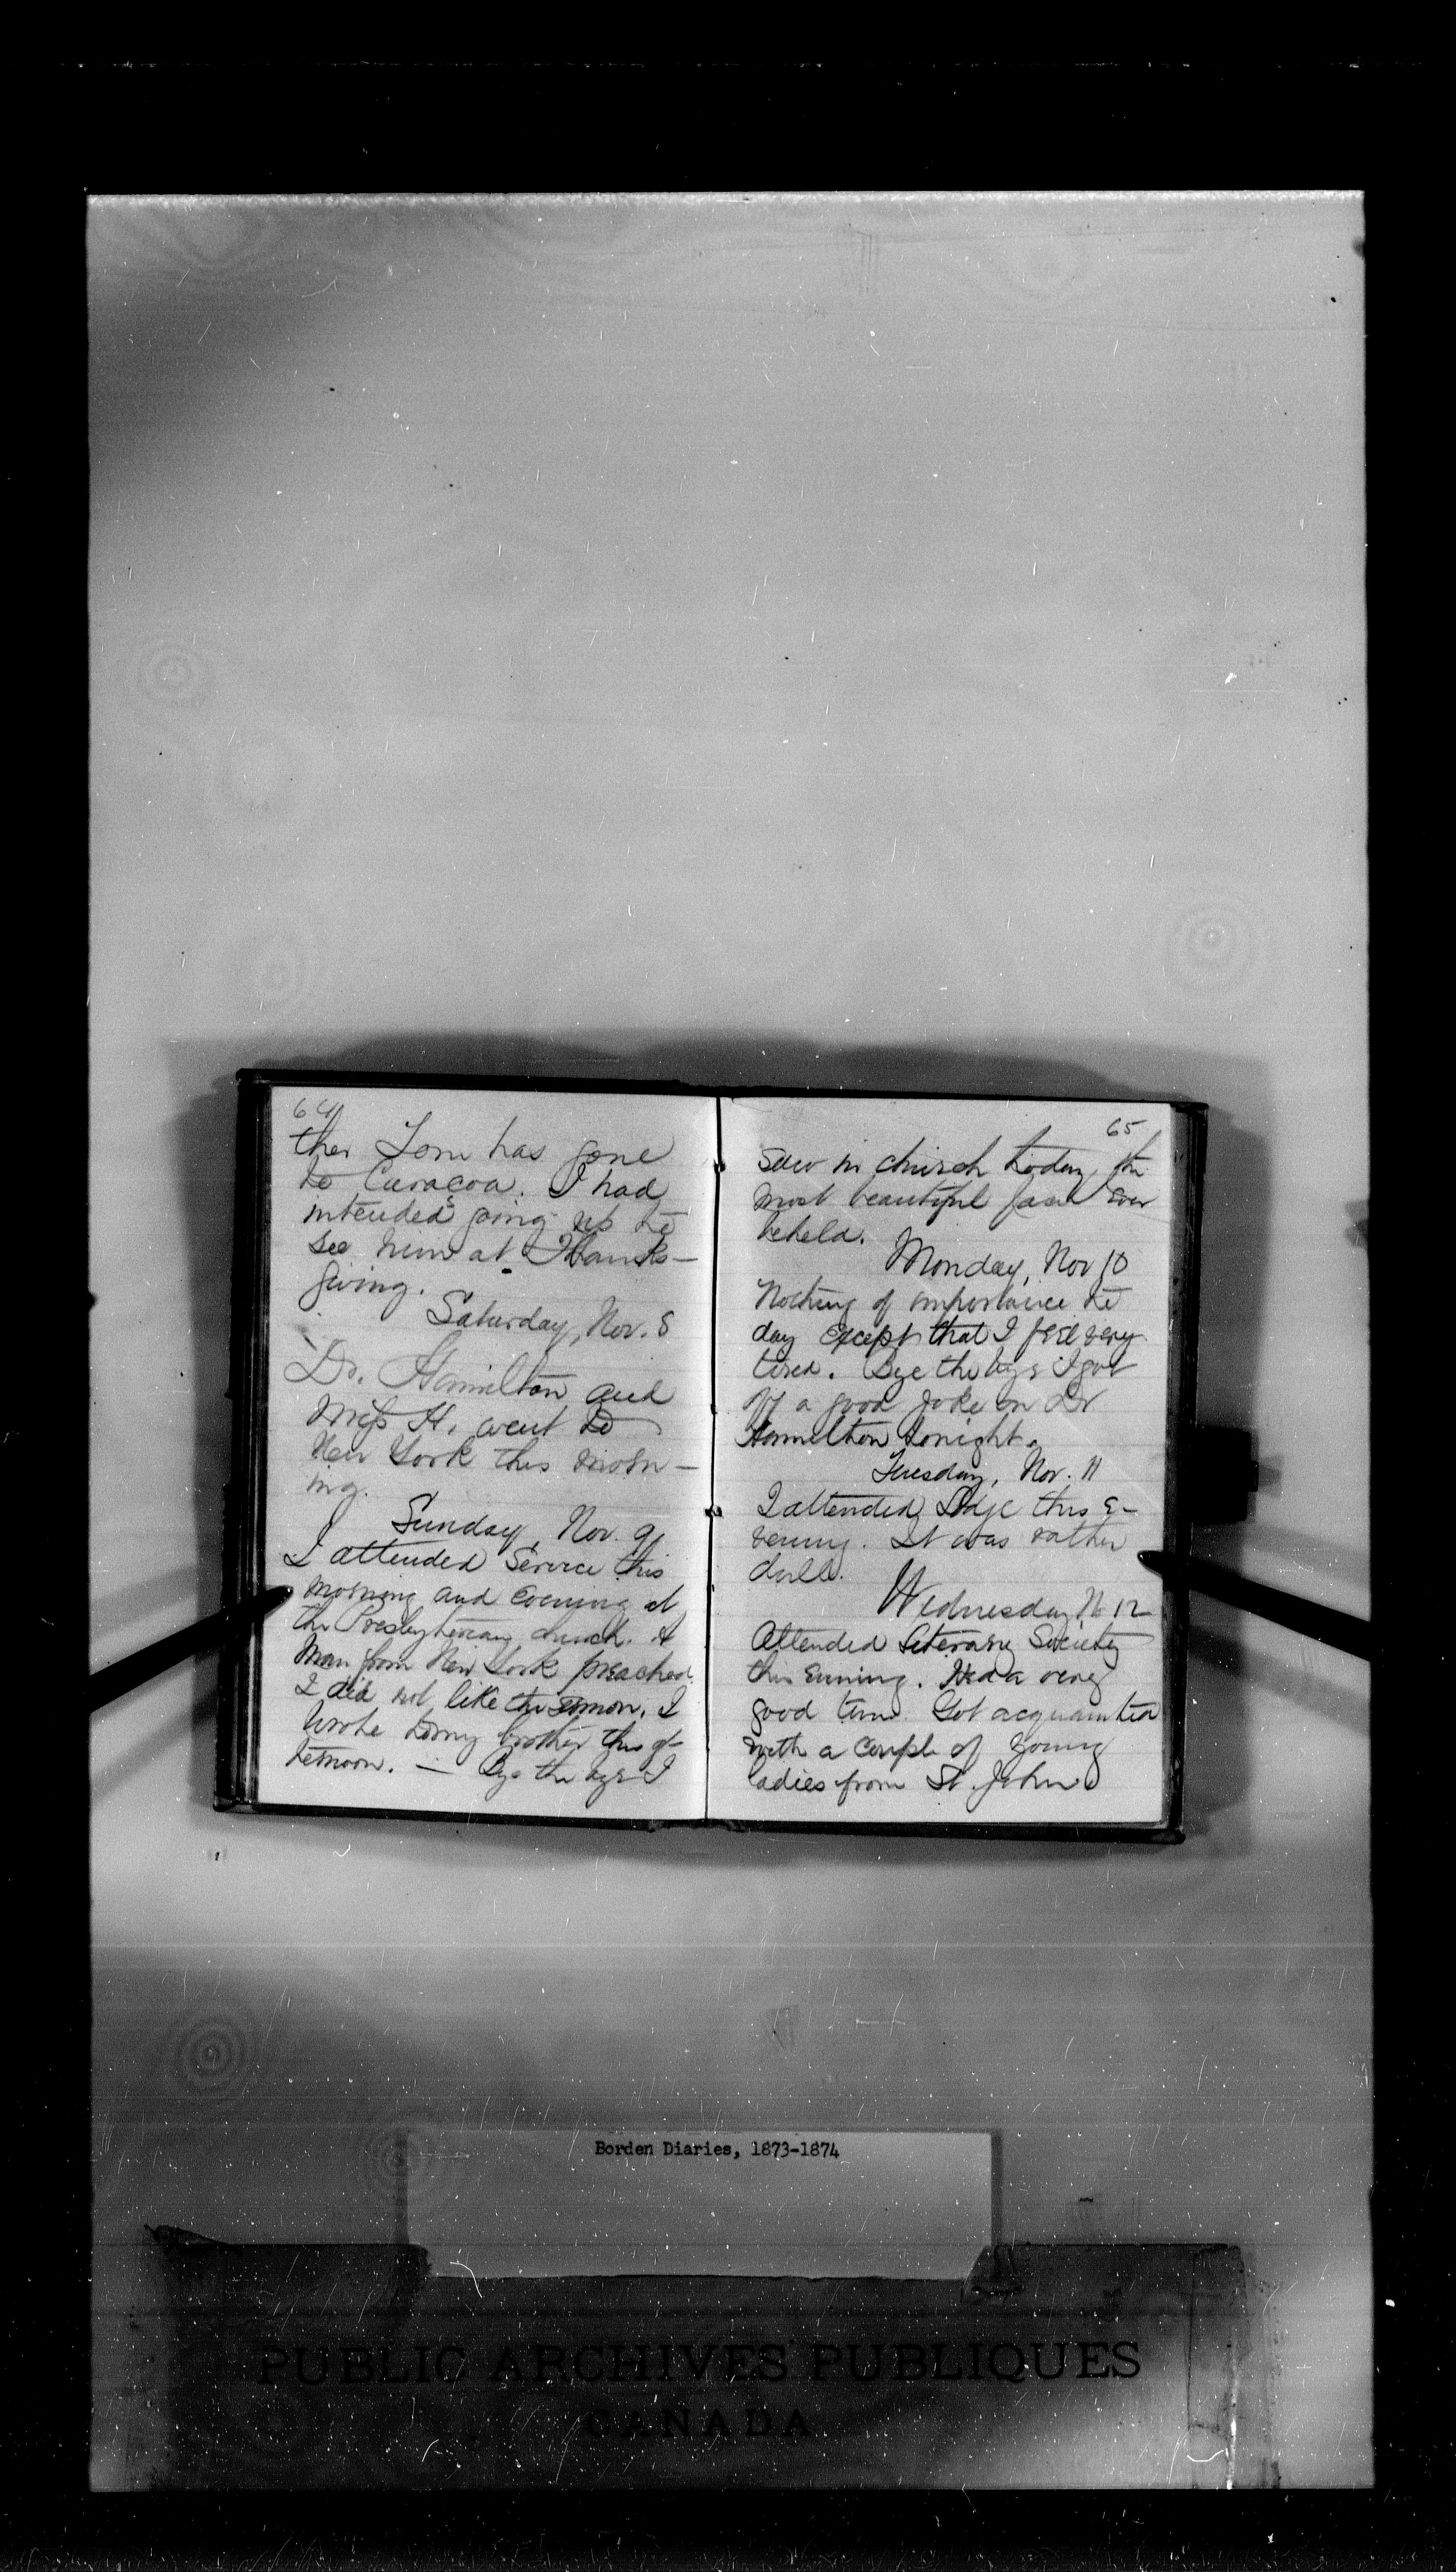 64
ther Tom has gone
to Curaçoa. I had
intended going up to
see him at Thanks-
giving.
Saturday, Nov. 8
Dr. Hamilton and
Miss H. went to
New York this morn-
ing.
Sunday, Nov. 9
I attended Service this
morning and evening at
the Presbyterian church. A
man from New York preached.
I did not like the sermon. I
wrote to my brother this af-
ternoon. — Bye the bye I
65
saw in church today the
most beautiful face I ever
beheld.
Monday, Nov 10
Nothing of importance to
day except that I feel very
tired. Bye the bye I got
off a good joke on Dr
Hamilton tonight.
Tuesday, Nov. 11
I attended Lodge this e-
vening. It was rather
dull.
Wednesday N 12
Attended Literary Society
this evening. Had a very
good time. Got acquainted
with a couple of young
ladies from St. John
Borden Diaries, 1873-1874
PUBLIC ARCHIVES PUBLIQUES
CANADA